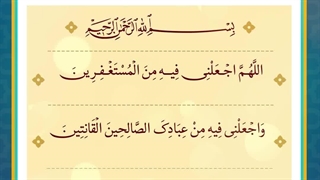 بِسْمِ اللهِ الرَّحْمنِ الرَّحِيْمِ
اللَّهُمَّ اجْعَلْنِی فِیهِ مِنَ الْمُسْتَغْفِرِینَ
وَاجْعَلْنِی فِیهِ مِنْ عِبَادِکَ الصَّالِحِینَ الْقَانِتِینَ